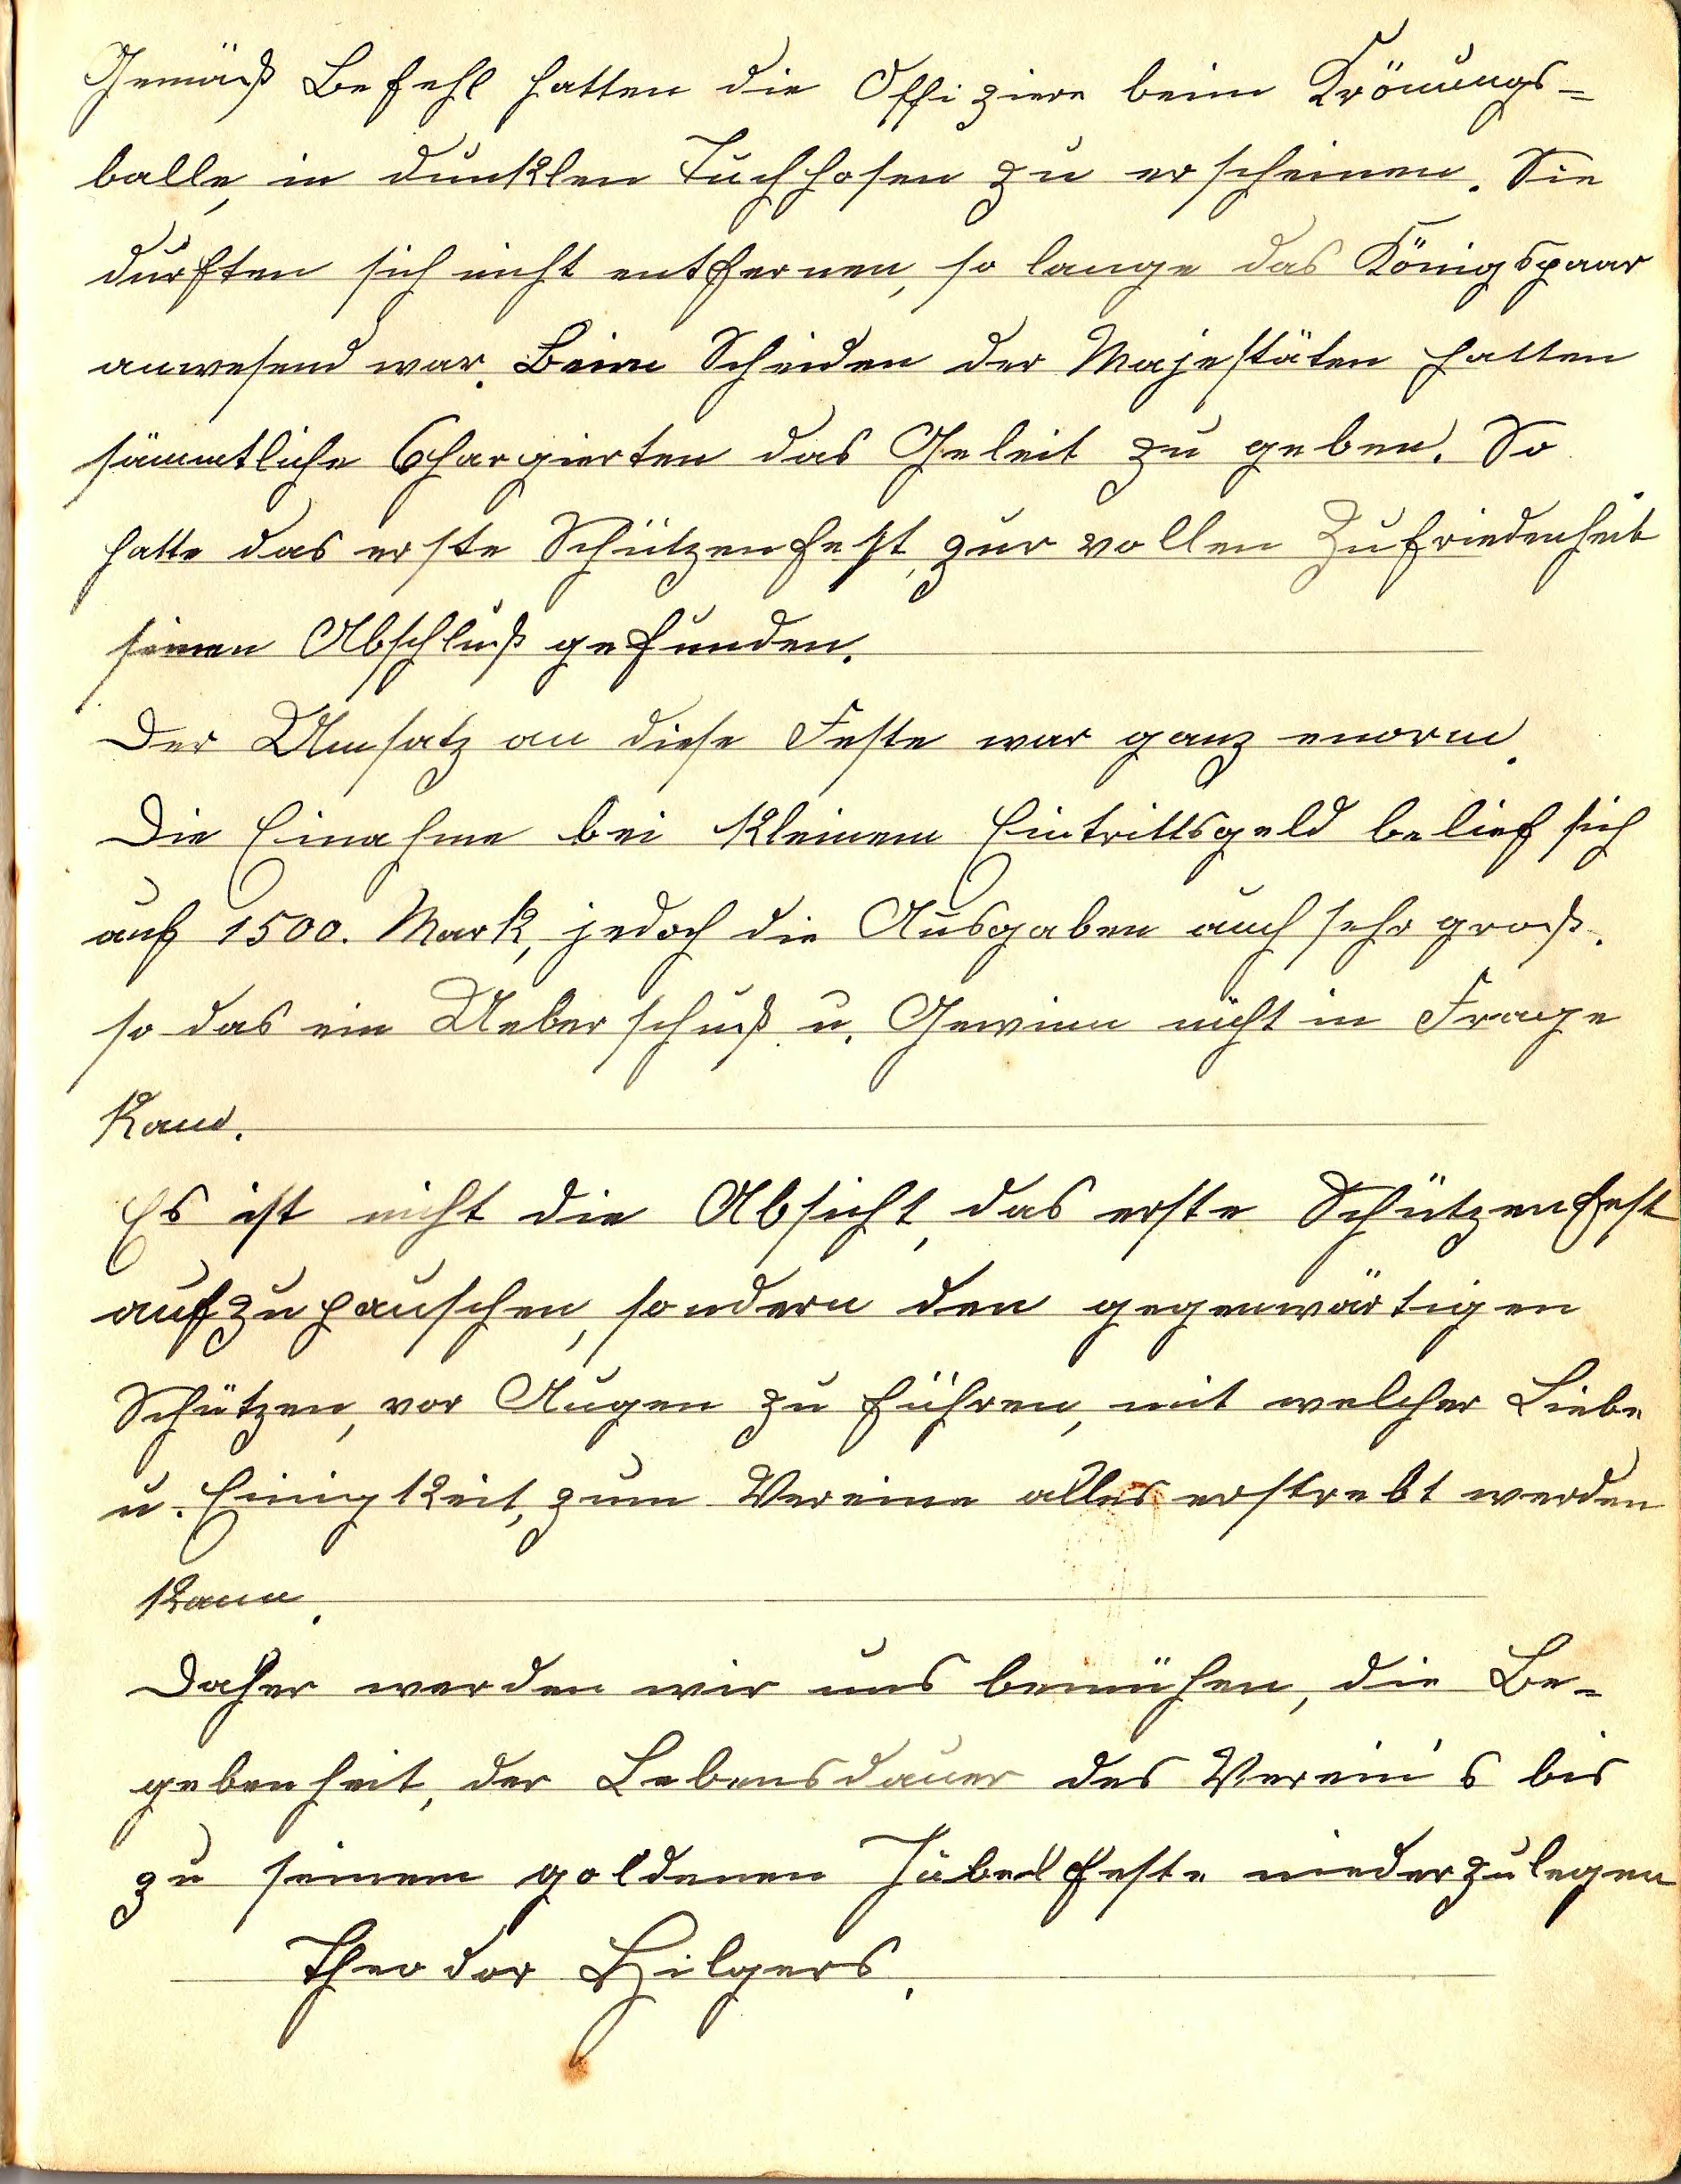 Gemäß Befehl hatten die Offiziere beim Krönungs=
balle, in dunklen Tuchhosen zu erscheinen. Sie
durften sich nicht entfernen, so lange das Königspaar
anwesend war. Beim Scheiden der Majestäten hatten
sämmtliche Chargierten das Geleit zu geben. So
hatte das erste Schützenfest, zur vollen Zufriedenheit
seinen Abschluß gefunden.
Der Umsatz an diese Feste war ganz enorm.
Die Einahme bei kleinem Eintrittsgeld belief sich
auf 1500. Mark, jedoch die Ausgaben auch sehr groß.
so das ein Ueberschuß u. Gewinn nicht in Frage
kam.
Es ist nicht die Absicht, das erste Schützenfest
aufzupauschen, sondern den gegenwärtigen
Schützen, vor Augen zu führen, mit welcher Liebe
u. Einigkeit, zum Vereine alles erstrebt werden
kann.
Daher werden wir uns bemühen, die Be=
gebenheit, der Lebensdauer des Verein's bis
zu seinem goldenen Jubelfeste niederzulegen
Theodor Hilgers.